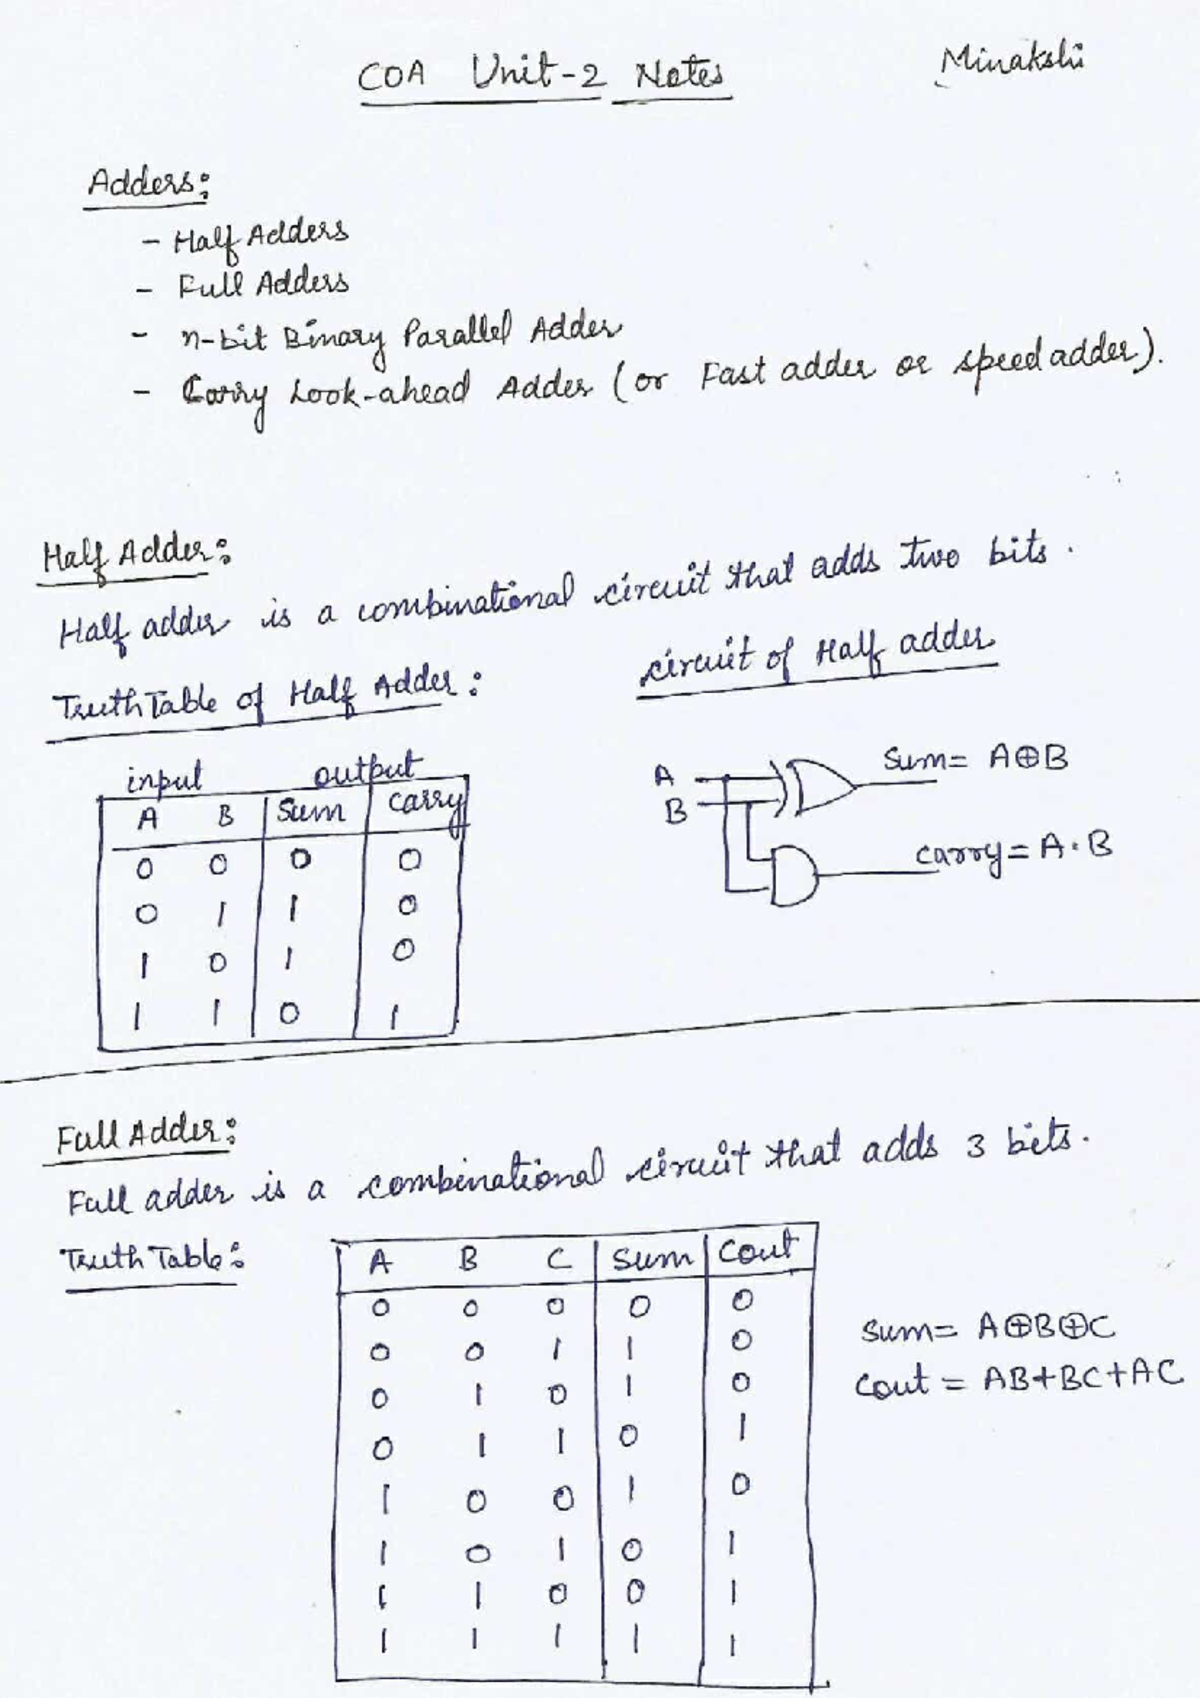 COA Unit-2 Notes
Minakshi
Adders:
- Half Adders
- Full Adders
- n-bit Binary Parallel Adder
- Carry Look-ahead Adder (or Fast adder or speed adder).
Half Adder:
Half adder is a combinational circuit that adds two bits.
Truth Table of Half Adder:
input output
A B Sum Carry
0 0 0 0
0 1 1 0
1 0 1 0
1 1 0 1
circuit of Half adder
A
B
Sum = A⊕B
carry = A·B
Full Adder:
Full adder is a combinational circuit that adds 3 bits.
Truth Table:
A B C Sum Cout
0 0 0 0 0
0 0 1 1 0
0 1 0 1 0
0 1 1 0 1
1 0 0 1 0
1 0 1 0 1
1 1 0 0 1
1 1 1 1 1
Sum = A⊕B⊕C
Cout = AB+BC+AC